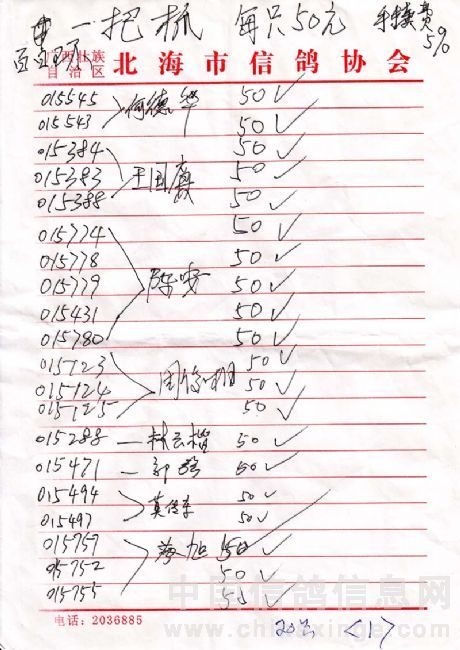 一把抓 每只50元 手续费5%
广西壮族自治区 北海市信鸽协会
015545 何德华 50 ✓
015543 50 ✓
015384 50 ✓
015383 王国 50 ✓
015388 50 ✓
015774 50 ✓
015778 50 ✓
015779 陈 50 ✓
015431 50 ✓
015780 50 ✓
015123 50 ✓
015124 周 50 ✓
015125 50 ✓
015288 — 林云楷 50 ✓
015471 — 郭 50 ✓
015494 50 ✓
015497 莫 50 ✓
015757 旭 50 ✓
015752 50 ✓
015755 50 ✓
电话：2036885
20羽 <1>
中国信鸽信息网
www.chinaxinge.com